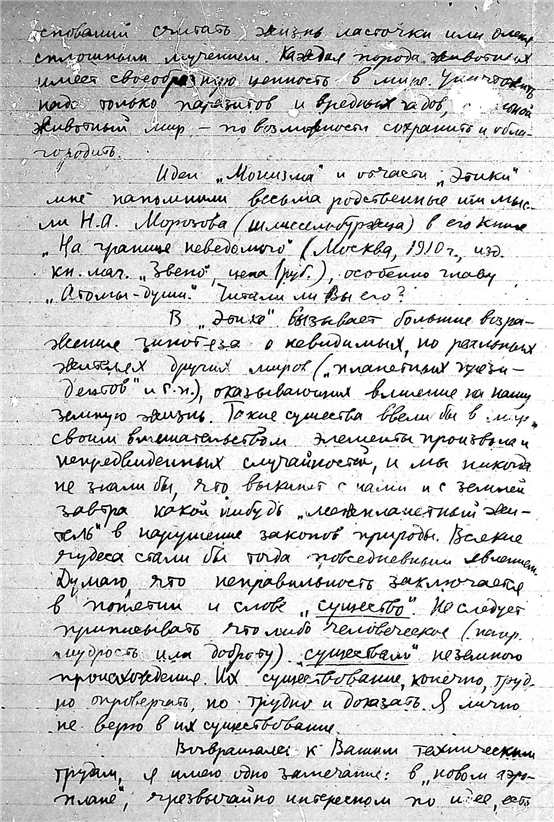 снований считать жизнь ласточки или оленя
сплошным мучением. Каждая порода животных
имеет своеобразную ценность в мире. Уничтожить
надо только паразитов и вредных гадов,
животный мир — по возможности сохранить и обла-
городить.
Идеи „Монизма" и отчасти „Этики"
мне напомнили весьма родственные им мыс-
ли Н.А. Морозова (шлиссельбуржца) в его книге
„На границе неведомого" (Москва, 1910 г., изд.
кн. маг. „Звено", цена 1 руб.), особенно главу
„Атомы-души". Читали ли Вы его?
В „Этике" вызывает большие возра-
жения гипотеза о невидимых, но реальных
жителях других миров („планетных прези-
дентов" и т.п.), оказывающих влияние на нашу
земную жизнь. Такие существа ввели бы в мир
своим вмешательством элементы произвола и
непредвиденных случайностей, и мы никогда
не знали бы, что выкинет с нами и с землей
завтра какой нибудь „межпланетный жи-
тель" в нарушение законов природы. Всякие
чудеса стали бы тогда повседневным явлением.
Думаю, что неправильность заключается
в понятии и слове „существо". Не следует
приписывать что либо человеческое (напр.
мудрость или доброту) „существам" неземного
происхождения. Их существование, конечно, труд-
но опровергать, но трудно и доказать. Я лично
не верю в их существование.
Возвращаясь к Вашим техническим
трудам, я имею одно замечание: в „новом аэро-
плане", чрезвычайно интересном по идее, есть